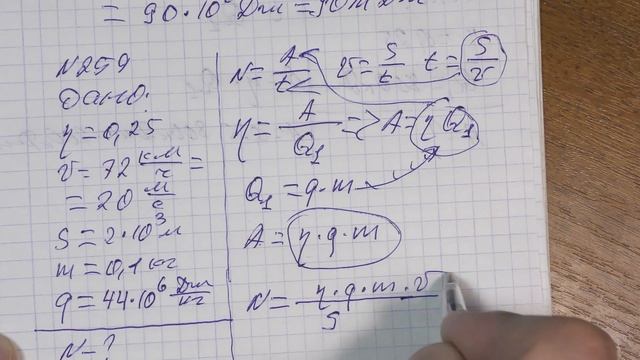 = 90·10⁶ Дж = 90 МДж
N259
Дано:
η = 0,25
v = 72 км/ч =
= 20 м/с
S = 2·10³ м
m = 0,1 кг
q = 44·10⁶ Дж/кг
N - ?
N = A/t v = S/t t = S/v
η = A/Q₁ => A = η Q₁
Q₁ = q·m
A = η·q·m
N = η·q·m·v/S